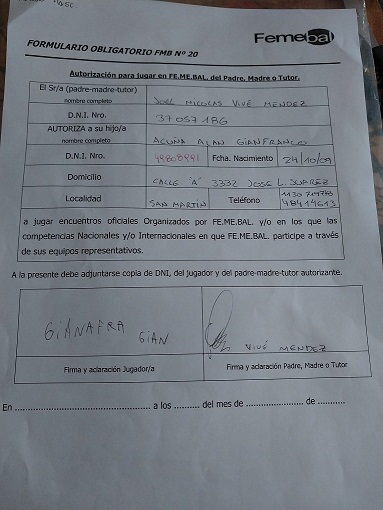 Femebal
FORMULARIO OBLIGATORIO FMB Nº 20
Autorización para jugar en FE.ME.BAL. del Padre, Madre o Tutor.
El Sr/a (padre-madre-tutor)
nombre completo
JOEL NICOLAS VIVÉ MENDEZ
D.N.I. Nro. 37057186
AUTORIZA a su hijo/a
nombre completo
ACUÑA ALAN GIANFRANCO
D.N.I. Nro. 49808941 Fcha. Nacimiento 24/10/09
Domicilio CALLE "A" 3332 JOSE L. SUAREZ
Localidad SAN MARTIN Teléfono
48414613
a jugar encuentros oficiales Organizados por FE.ME.BAL. y/o en los que las
competencias Nacionales y/o Internacionales en que FE.ME.BAL. participe a través
de sus equipos representativos.
A la presente debe adjuntarse copia de DNI, del jugador y del padre-madre-tutor autorizante.
GIANAFRA
GIAN
VIVÉ MENDEZ
Firma y aclaración Jugador/a
Firma y aclaración Padre, Madre o Tutor
En ........................................ a los .......... del mes de ..................... de .........